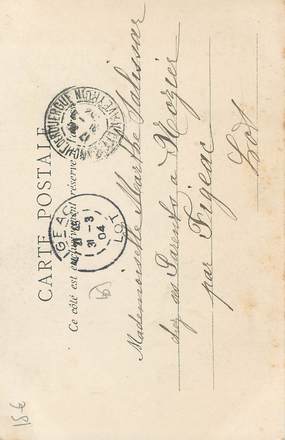 CARTE POSTALE
Ce côté est exclusivement réservé
VILLEFRANCHE-DE-ROUERGUE AVEYRON
FIGEAC
31 -3
04
LOT
Mademoiselle Marthe
chez ses Parents à
par Figeac
Lot
15€